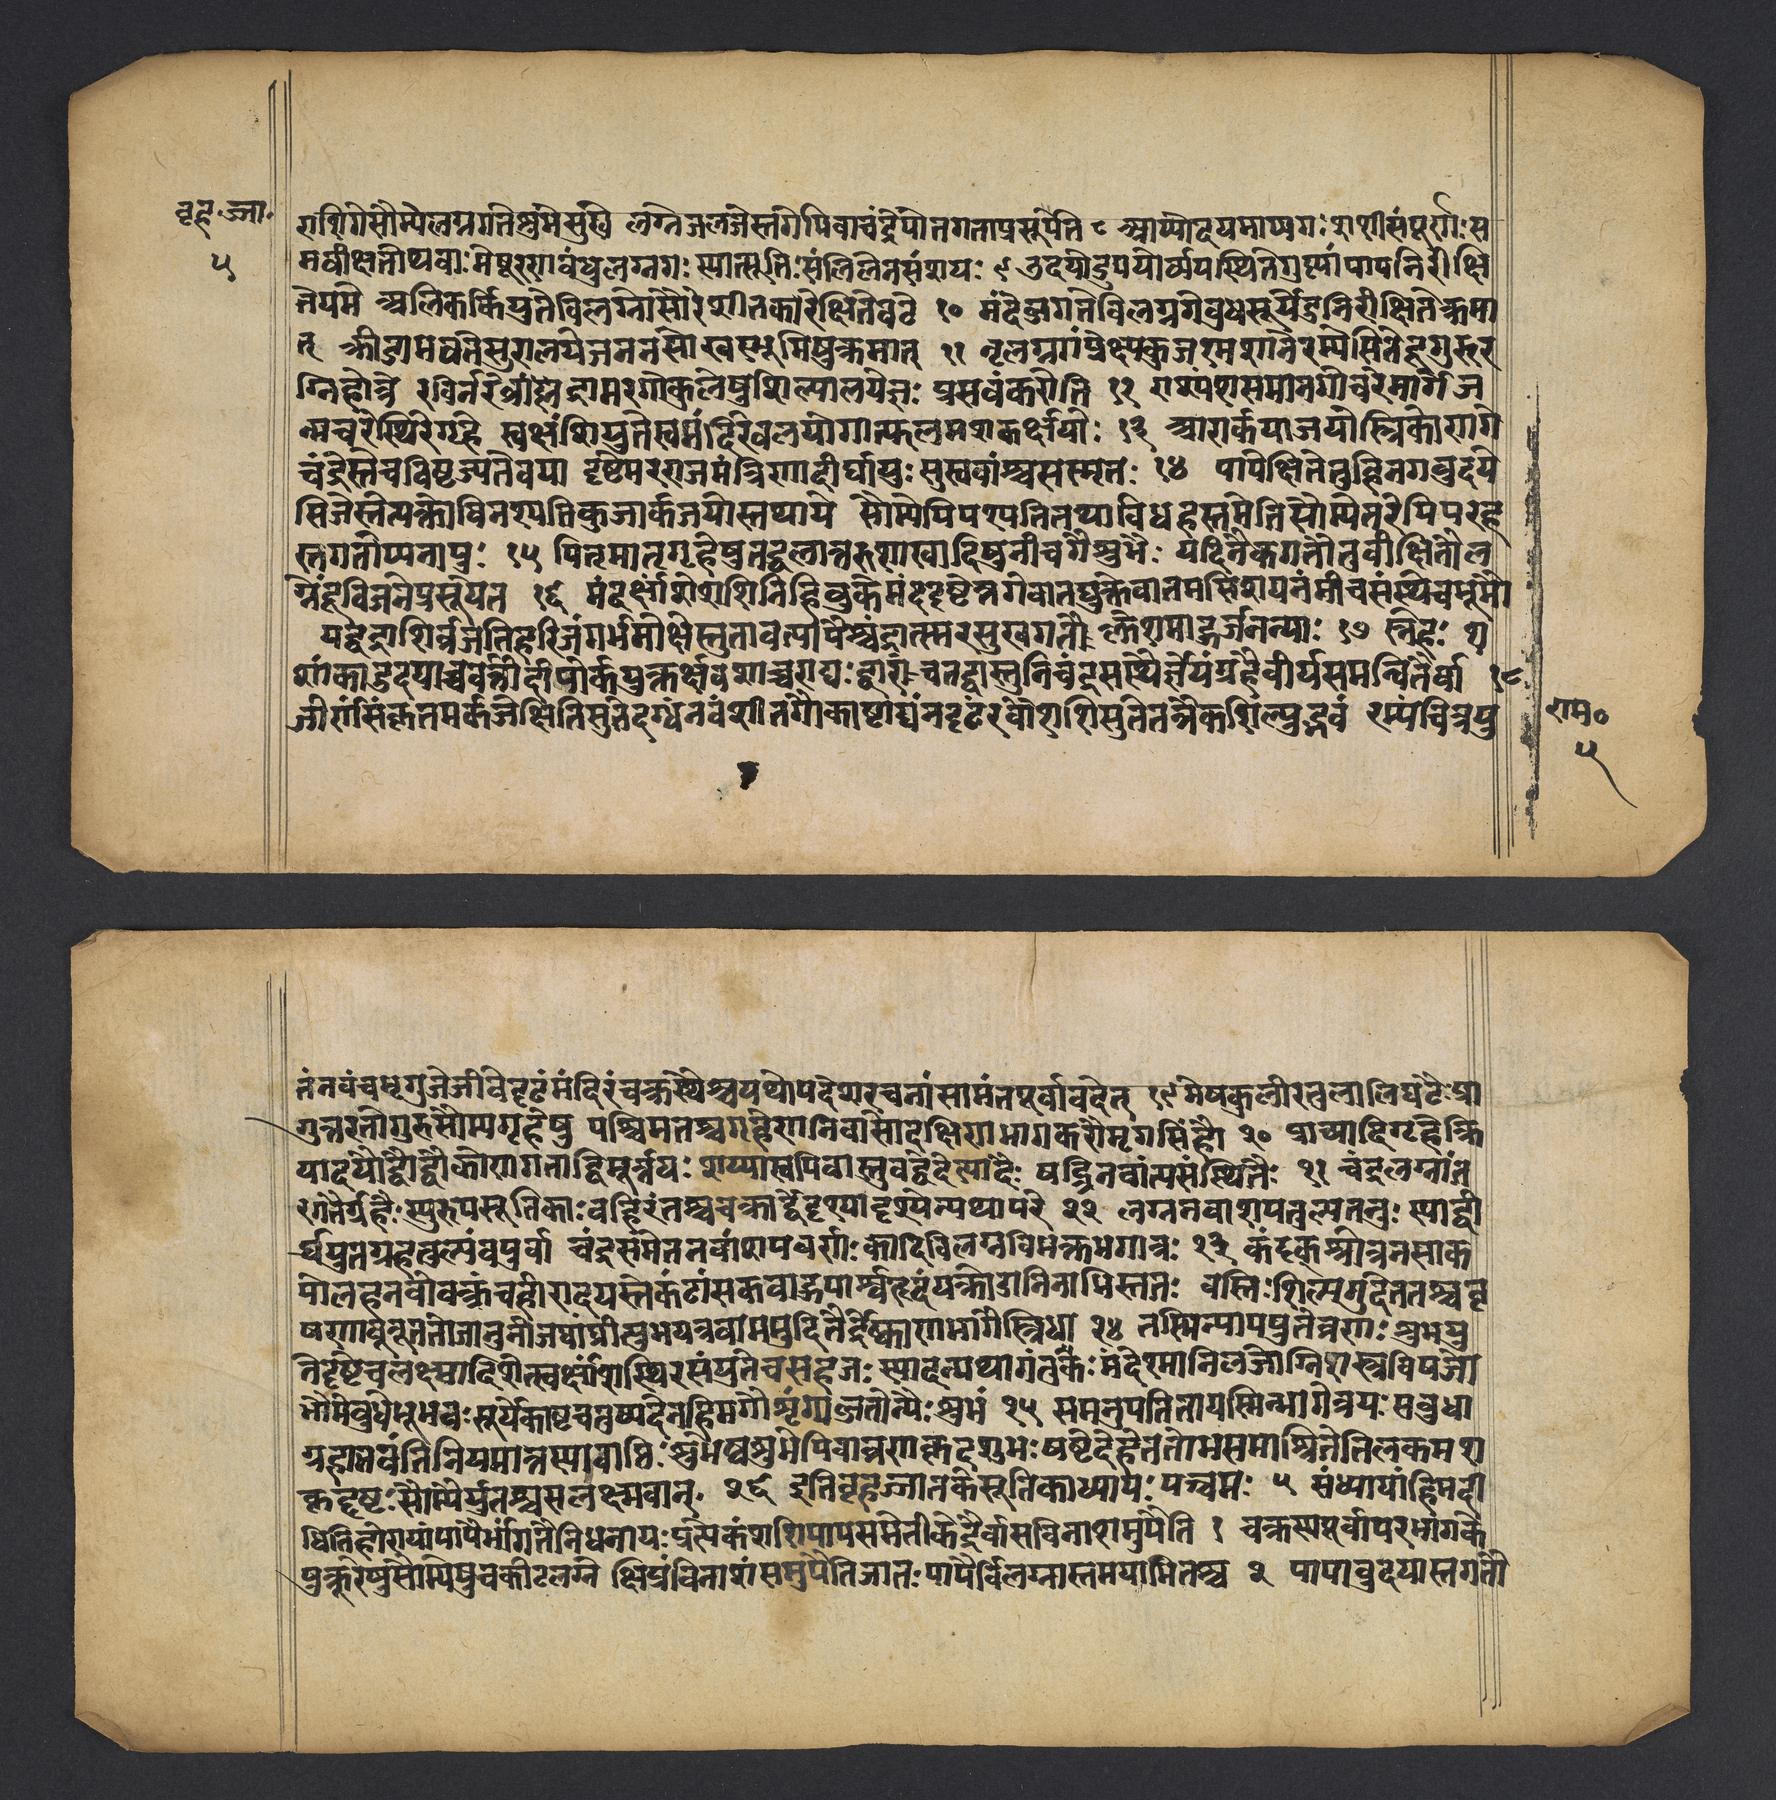 बृह.ज्जा.
५
राशिगेसौम्येलग्नगतेशुभेसुखे लग्नेजलजेस्तगेपिवाचंद्रेपोतगताप्रसूयेते ८ आप्योदयमाप्यगः शशीसंपूर्णः स
मवीक्षतेथवाः मेषूरणबंधुलग्नगः स्यात्सूतिः सलिलेनसंशयः ९ उदयोडुपयोर्व्ययस्थितेगुप्त्यांपापनिरीक्षि
तेयमे अलिकर्कियुतेविलग्नगेसौरेशीतकरेक्षितेवटे १० मंदेब्जगतेविलग्नगेबुधसूर्येंदुनिरीक्षितेक्रमा
त् क्रीडाभवनेसुरालयेजननंसोखरभूमिषुक्रमात् ११ नृलग्नगंप्रेक्ष्यकुजश्मशानेरम्येसितेंदूगुरुर
ग्निहोत्रे रविर्नरेंद्रामरगोकुलेषुशिल्पालयेज्ञः प्रसवंकरोति १२ राश्यंशसमानगोचरेमार्गेज
न्मचरेस्थिरेगृहे स्वर्क्षांशयुतेस्वमंदिरेबलयोगात्फलमंशकर्क्षयोः १३ आरार्कयाजयोस्त्रिकोणगे
चंद्रेस्तेचविसृज्यतेवया दृष्टेमरराजमंत्रिणादीर्घायुः सुखवांश्चसस्मृतः १४ पापेक्षितेतुहिनगावुदये
सिजेस्तेत्यक्तोविनश्यतिकुजार्कजयोस्तथाये सौम्येपिपश्यतितथाविधहस्तमेतिसौम्येतरेपिपरह
स्तगतोप्यनायुः १५ पितृमातृगृहेषुतद्बलात्तरुशाखादिषुनीचगैशुभैः यदिनैकगतौतुवीक्षितौल
ग्नेंदूविजनेप्रसूयते १६ मंदर्क्षांशेशशिनिहिबुकेमंददृष्टेब्जगेवातद्युक्तेवातमसिशयनंनीचसंस्थैचभूमौ
यद्वद्राशिर्व्रजतिहरिजंगर्भमोक्षेस्तुतावत्पापैश्चंद्रात्स्मरसुखगतौः क्लेशमाहुर्जनन्याः १७ स्नेहः श
शांकादुदयाच्चवर्त्तीदीपोर्कयुक्तर्क्षवशाच्चराद्यः द्वारंचतद्वास्तुनिकेंद्रसंस्थैर्ज्ञेयंग्रहैवीर्यसमन्वितैर्वा १८
जीर्णंसंस्कृतमर्कजेक्षितिसुतेदग्धंनवंशीतगौकाष्टाद्यंनदृढंरवौशशिसुतेतन्नैकशिल्पुद्भवं रम्यंचित्रयु
राम०
५
तंनवंचभृगुजेजीवेदृढंमंदिरंचक्रस्थैश्चयथोपदेशरचनांसामंतपूर्वांवदेत् १९ मेषकुलीरतुलालिघटेः प्रा
गुत्तरतोगुरुसौम्यगृहेषु पश्चिमतश्चगृषेणनिवासोदक्षिणभागकरौमृगसिंहौ २० प्राच्यादिगृहेक्रि
यादयोद्वौद्वौकोणगताद्विमूर्त्तयः शय्यास्वपिवास्तुवद्वदेत्पादैः षट्त्रिनवांत्यसंस्थितैः २१ चंद्रलग्नांत
रगतैर्ग्रहैः स्युरुपसूतिकाः बहिरंतश्चचक्रार्द्धेदृश्यादृश्येन्यथापरे २२ लग्ननवांशपतुल्यतनुः स्याद्वी
र्ययुतग्रहतुल्यवपुर्वा चंद्रसमेतनवांशपवर्णः कादिविलग्नविभक्तभगात्रः २३ कंदृक्श्रोत्रनसाक
पोलहनवोवक्त्रंचहोरादयस्तेकंठांसकबाहुपार्श्वहृदयक्रोडानिनाभिस्ततः बस्तिः शिस्नगुदेततश्चवृ
षणावूरूततोजानुनीजंघांघ्रीत्युभयत्रवाममुदितैर्द्रेष्काणभागैस्त्रिधा २४ तस्मिन्पापयुतेव्रणः शुभयु
तेदृष्टेचलक्ष्मादिशेत्स्वर्क्षांशेस्थिरसंयुतेचसहजः स्यादन्यथागंतुकः मंदेश्मानिलजोग्निशस्त्रविषजो
भौमेबुधेभूभवः सूर्येकाष्टचतुष्पदेनहिमगौशृंग्यब्जतोन्यैः शुभं २५ समनुपतितायस्मिन्भागेत्रयः सबुधा
ग्रहाभवंतिनियमात्तस्यावाप्तिः शुभेष्वशुभेपिवाव्रणकृदशुभः षष्टेदेहेतनोभसमाश्रितेतिलकमश
कृदृष्टः सौम्यैर्युतश्चसलक्ष्मवान्, २६ इतिबृहज्जातकेसूतिकाध्यायः पञ्चमः ५ संध्यायांहिमदी
धितिहोरायांपापैर्भांगतेनिधनायः प्रत्येकंशशिपापसमेतोकेंद्रैर्वासविनाशमुपैति १ चक्रस्यपूर्वापरभागके
षुक्रूरेषुसौम्येषुचकीटलग्ने क्षिप्रंविनाशंसमुपैतिजातः पापैर्विलग्नास्तमयाभितश्च २ पापावुदयास्तगतौ